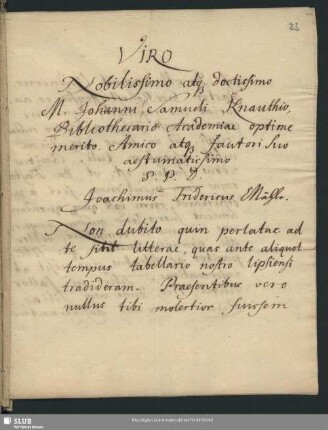 23
VIRO
Nobilissimo atq; doctissimo
M. Johanni Samueli Knauthio,
Bibliothecario Academiae optime
merito. Amico atq; fautori suo
aestumatissimo
S. P. D.
Joachimus Fridericus
Non dubito quin perlatae ad
te sint litterae, quas ante aliquot
tempus tabellario nostro lipsiensi
tradideram. Praesentibus vero
nullus tibi molestior fuissem
SLUB